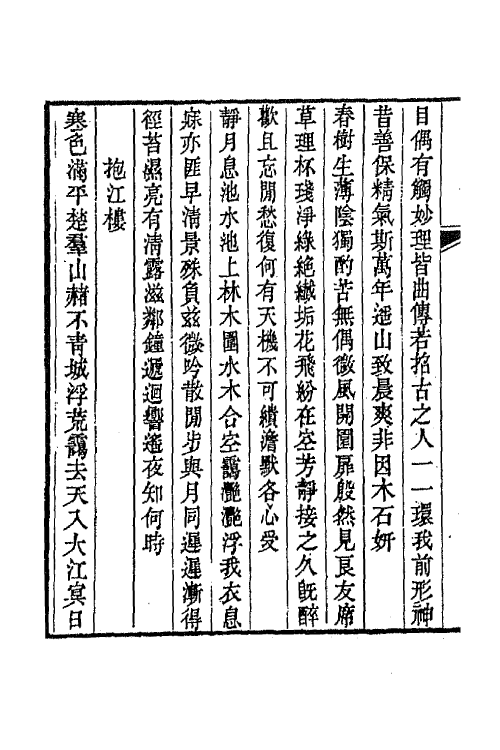 目偶有觸妙理皆曲傳若招古之人一一環我前形神
昔善保精氣斯萬年遥山致晨爽非因木石妍
春樹生薄陰獨酌苦無偶微風開園扉殷然見良友席
草理杯殘淨綠絕纖垢花飛紛在空芳靜接之久旣醉
歡且忘閒愁復何有天機不可續澹默各心受
靜月息池水池上林木圍水木合空靄灔灔浮我衣息
寐亦匪早清景殊負兹微吟散閒步與月同遲遲漸得
徑苔濕亮有清露滋鄰鐘遞迴響遙夜知何時
抱江樓
寒色滿平楚羣山赭不靑城浮荒靄去天入大江冥日